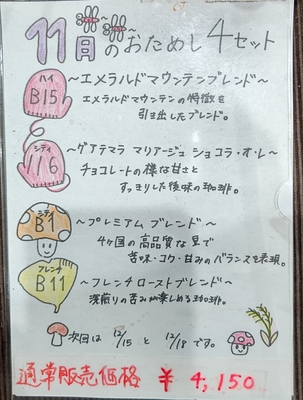 11月のおためし4セット
ハイ
B15
～エメラルドマウンテンブレンド～
エメラルドマウンテンの特徴を
引き出したブレンド。
シティ
116
～グアテマラ マリアージュ ショコラ・オ・レ～
チョコレートの様な甘さと
すっきりした後味の珈琲。
シティ
B1
～プレミアム ブレンド～
4ヶ国の高品質な豆で
苦味・コク・甘みのバランスを表現。
フレンチ
B11
～フレンチローストブレンド～
深煎りの苦みが楽しめる珈琲。
次回は 12/15 と 12/18 です。
通常販売価格 ¥4,150